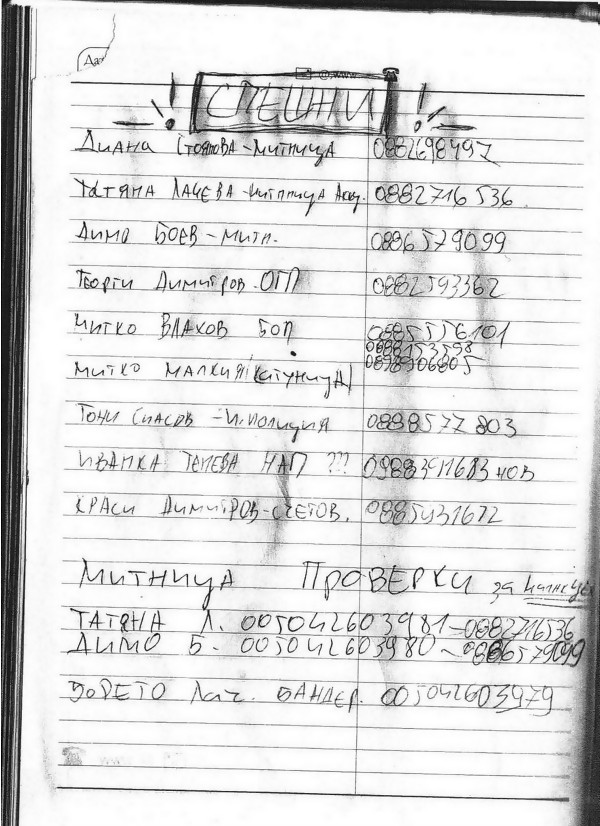 ! СПЕШНИ !
ДИАНА СТОЯНОВА - МИТНИЦА 0882698497
ТАТЯНА ЛАЧЕВА - 0882716536
ДИМО БОЕВ - МИТН. 0886579099
ГЕОРГИ ДИМИТРОВ - ОГП 0882593362
МИТКО ВЛАХОВ БОП 0885556101
0888153598
МИТКО МАЛКИЯ (КАТУНИЦА) 0898906805
ТОНИ СПАСОВ - И. ПОЛИЦИЯ 0888577803
ИВАНКА НАП ??? НОВ
КРАСИ ДИМИТРОВ - СЧЕТОВ. 0885431672
МИТНИЦА ПРОВЕРКИ за
ТАТЯНА Л. 005042603981 - 0882716536
ДИМО Б - 005042603980 - 0886579099
БОРЕТО Лач. БАНДЕР. 005042603979